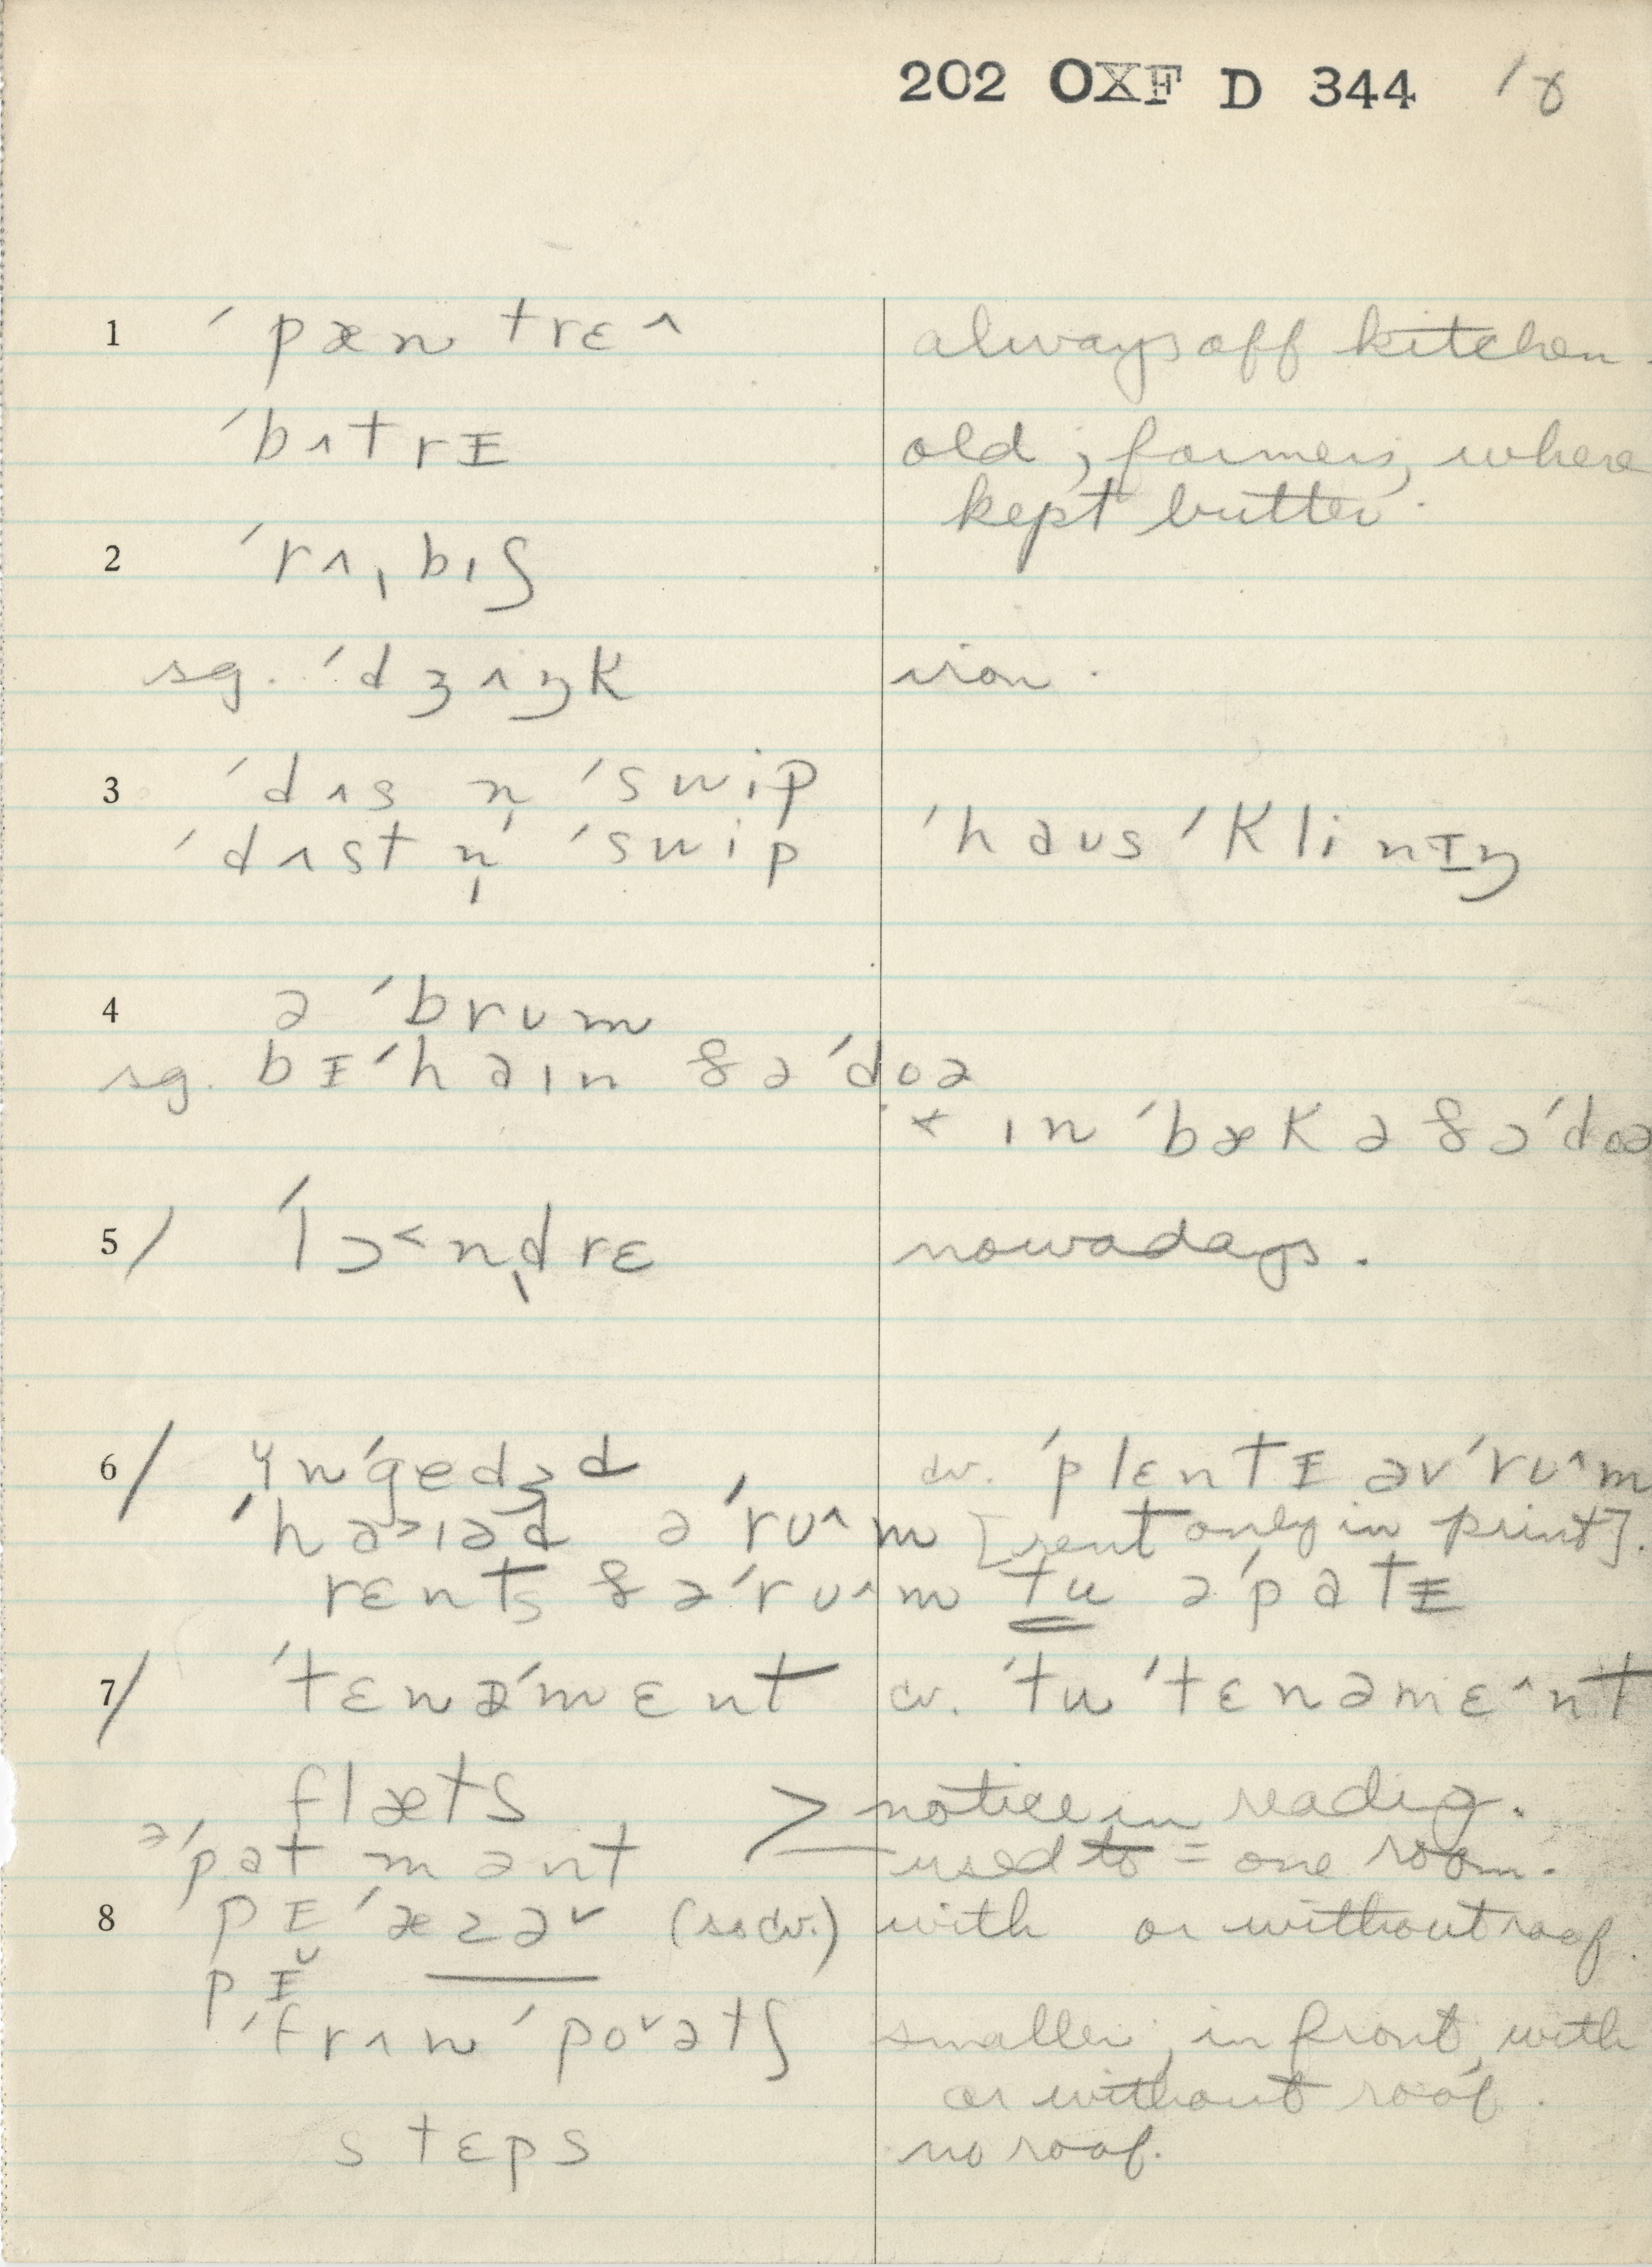 202 OXF D 344 18
1 ˈpæntrɛ^ always off kitchen.
ˈbʌtrɪ old; farmers, where
kept butter.
2 ˈrʌˌbɪʃ
sg. ˈdʒʌŋk iron.
3 ˈdʌs n̩ ˈswip
ˈdʌst n̩ ˈswip ˈhaʊs ˈklinɪŋ
4 ə ˈbrʊm
sg. bɪˈhaɪn ðə ˈdoə
ɪn ˈbæk ə ðə ˈdoə
5/ ˈlɔ˂n̩drɛ nowadays.
6/ ɪnˈgedʒd cv. ˈplɛntɪ əv ˈrʊ^m
ˈhaɪəd ə ˈrʊ^m [rent only in print].
rɛnts ðə ˈrʊ^m tu ə ˈpatɪ
7/ ˈtɛnəˈmɛnt cv. ˈtu ˈtɛnəmɛ^nt
flæts > notice in reading.
əˈpatmənt used to = one room.
8 pɪˈæzəˇ (so cv.) with or without roof.
pɪˇ
ˈfrʌn ˈpoˇətʃ smaller; in front, with
or without roof.
stɛps no roof.